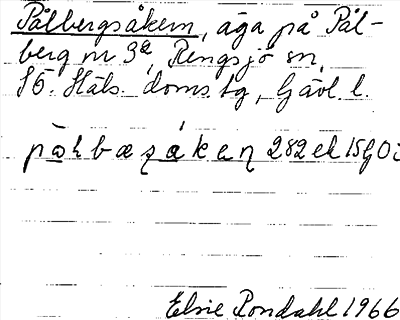 Pålbergsåkern, äga på Pål-
berg nr 3a, Rengsjö sn,
Sö. Häls. doms.tg, Gävl. l.
282 ek 15 G0
Elsie Rondahl 1966